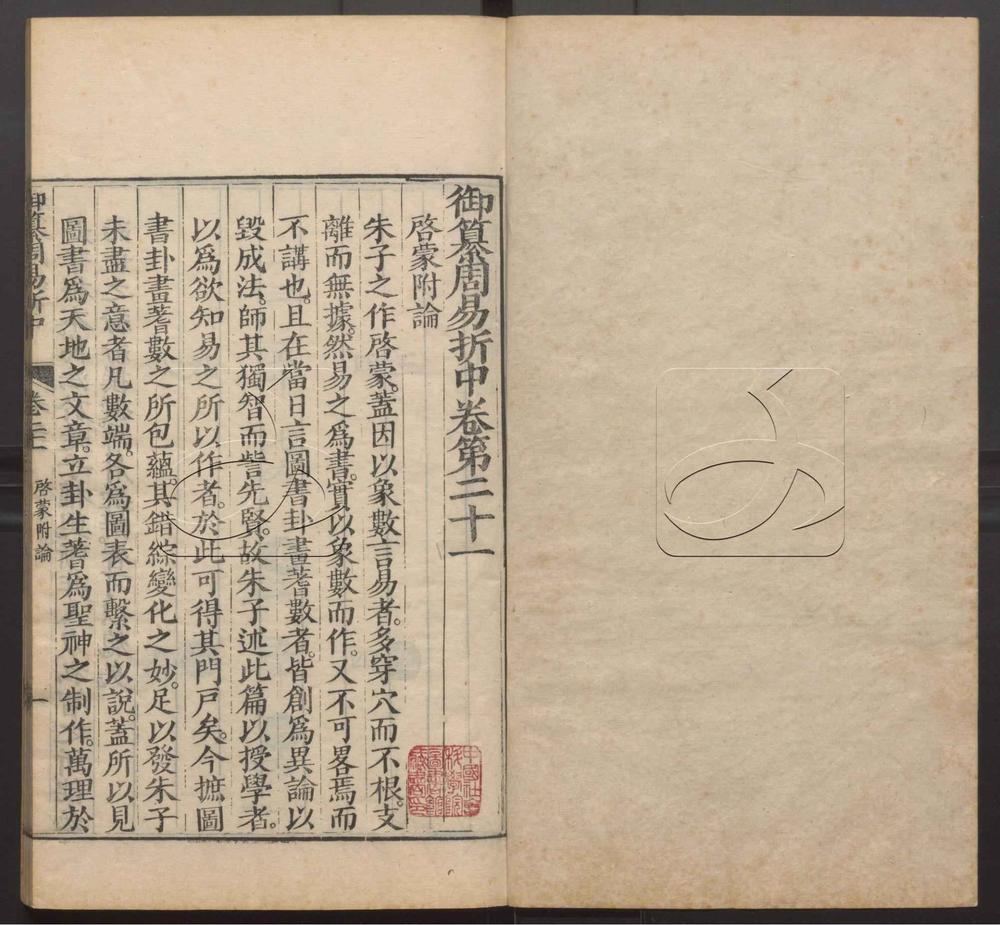 御纂周易折中卷第二十一
啓蒙附論
朱子之作啓蒙。蓋因以象數言易者。多穿穴而不根。支
離而無據。然易之爲書。實以象數而作。又不可畧焉而
不講也。且在當日言圖書卦畫蓍數者。皆創爲異論以
毀成法。師其獨智而訾先賢。故朱子述此篇以授學者。
以爲欲知易之所以作者。於此可得其門戸矣。今摭圖
書卦畫蓍數之所包蘊。其錯綜變化之妙。足以發朱子
未盡之意者凡數端。各爲圖表而繫之以說。蓋所以見
圖書爲天地之文章。立卦生蓍爲聖神之制作。萬理於
御纂周易折中
卷二十一
啓蒙附論
一